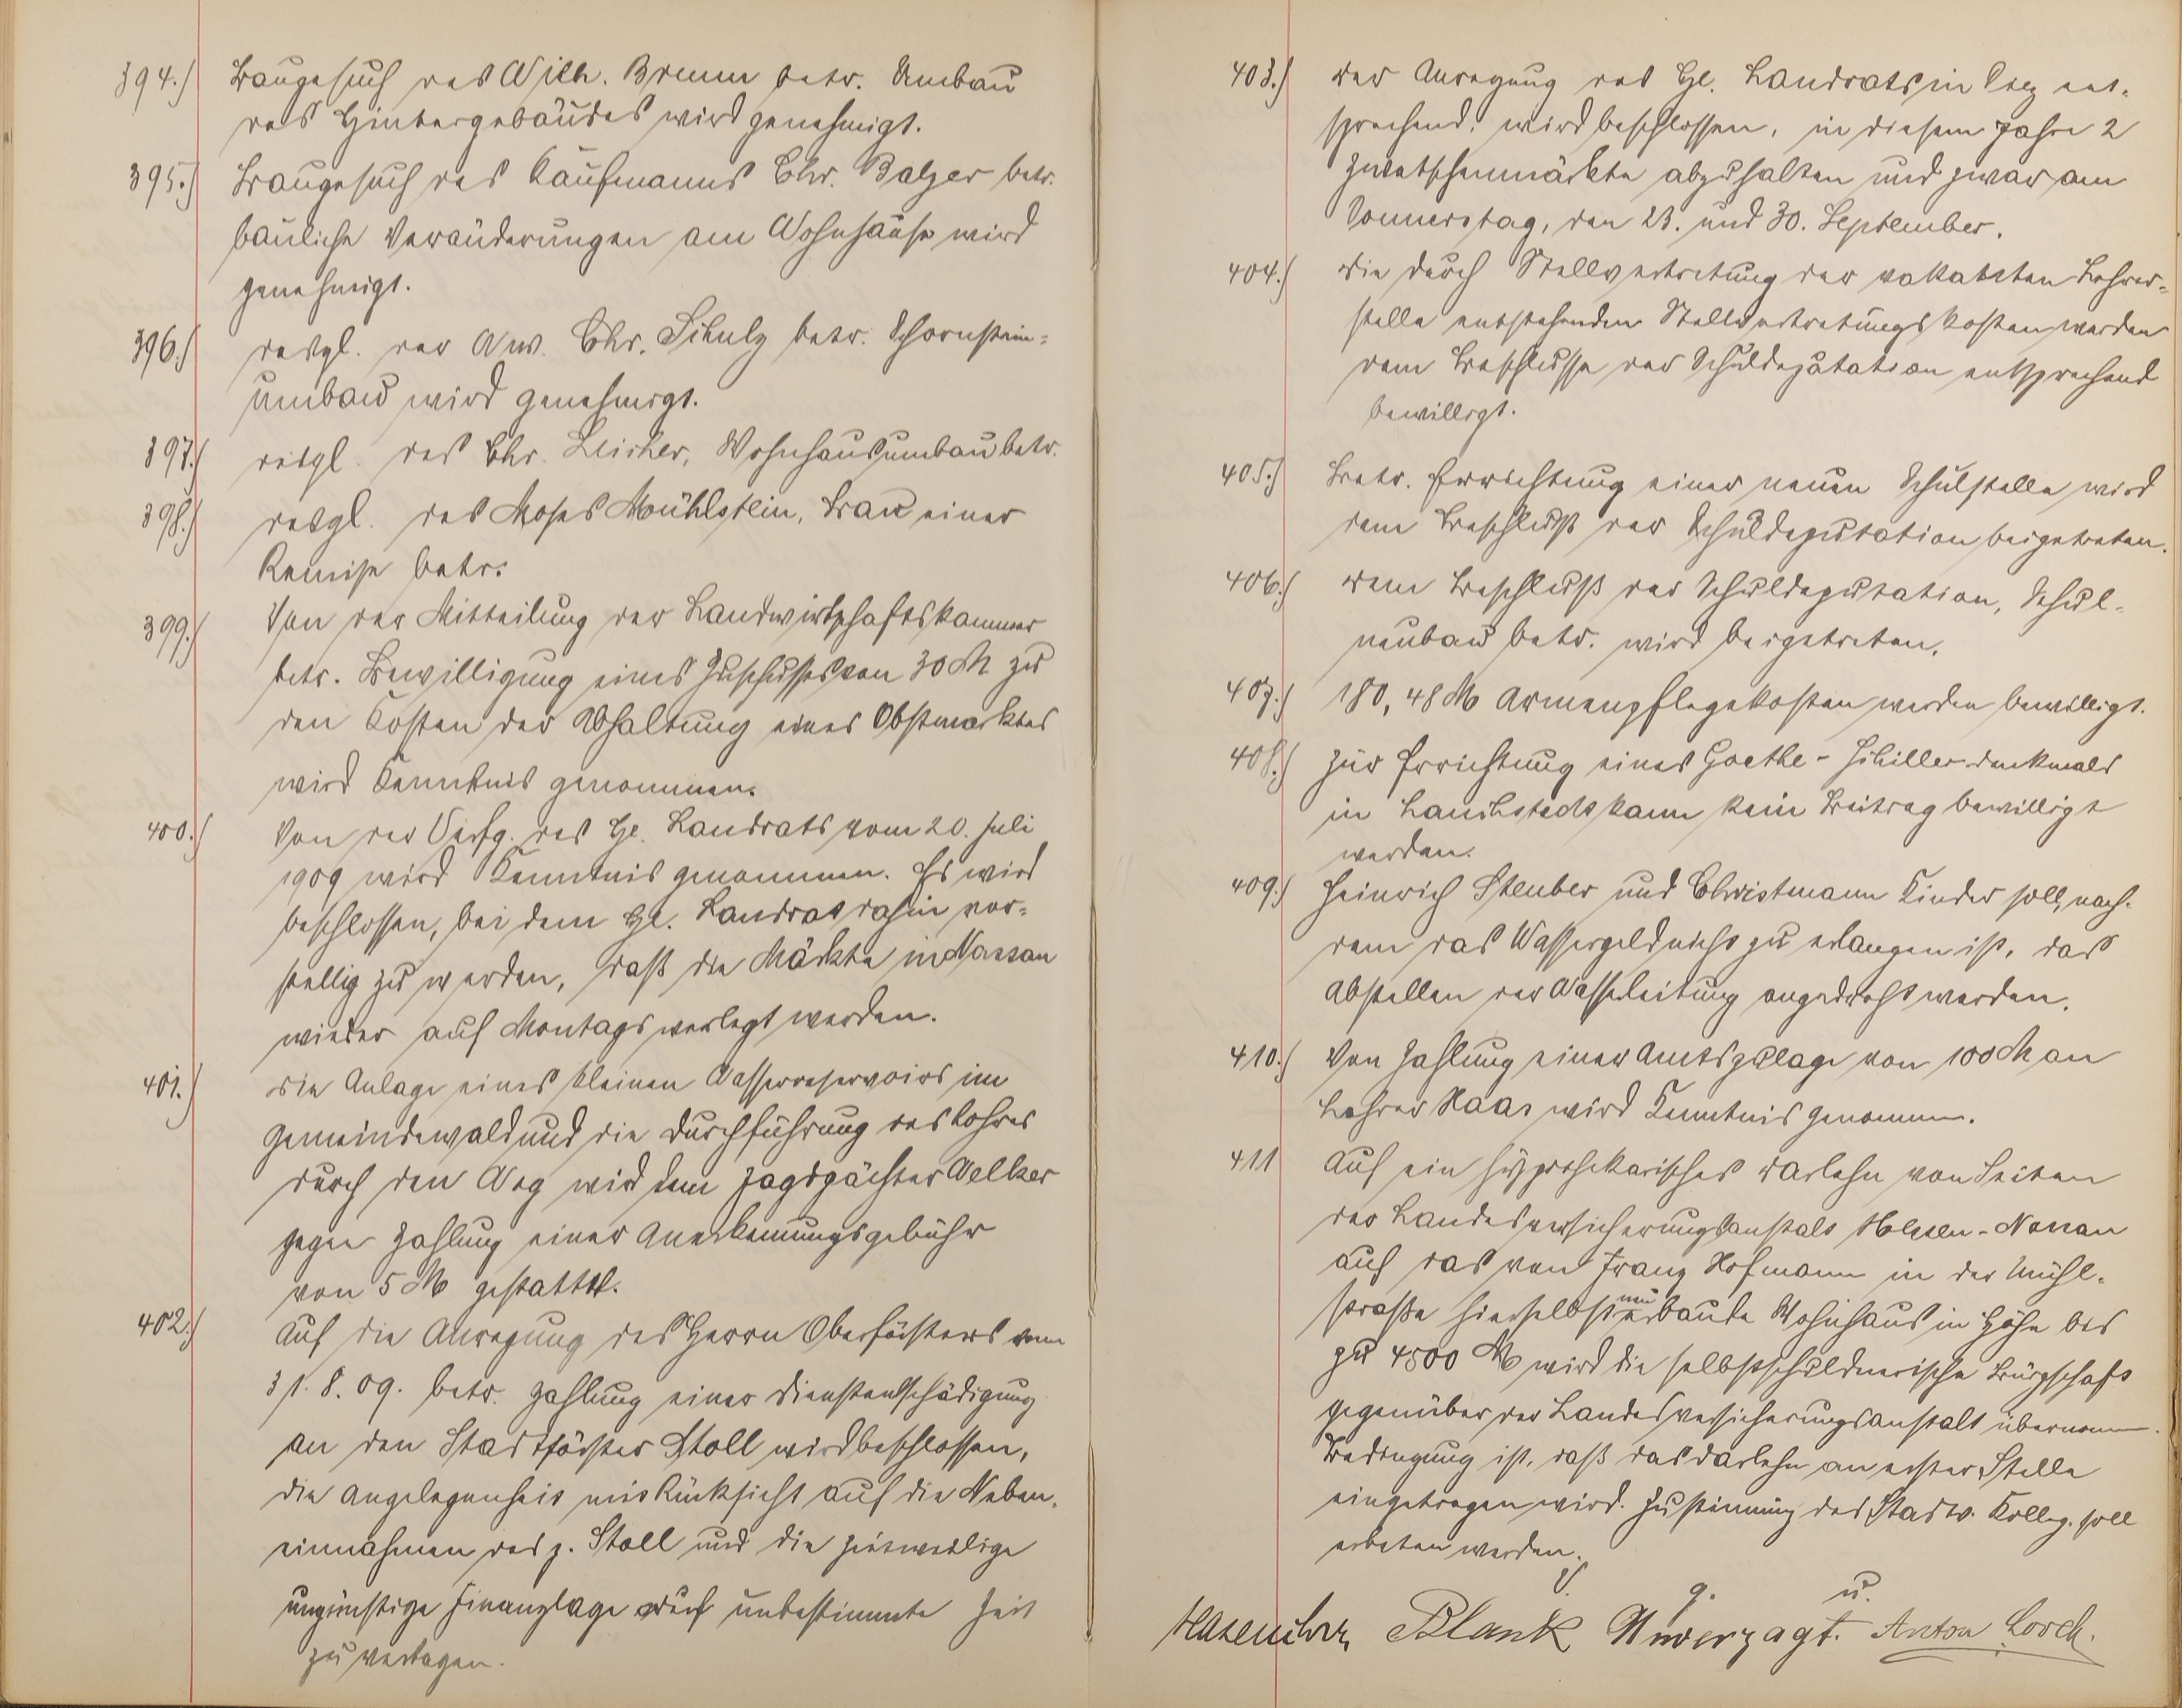 394.) Baugesuch des Wilh. Bremm betr. Umbau
des Hintergebäudes wird genehmigt.
395.) Baugesuch des Kaufmanns Chr. Balzer betr.
bauliche Veränderungen am Wohnhause wird
genehmigt.
396.) desgl. der Ww. Chr. Schulz betr. Schornstein-
umbau wird genehmigt.
397.) desgl. des Chr. Leicher, Wohnhausumbau betr.
398.) desgl. des Moses Mühlstein, Bau einer
Remise betr.
399.) Von der Mitteilung der Landwirtschaftskammer
betr. Bewilligung eines Zuschusses von 30 M zu
den Kosten der Abhaltung eines Obstmarktes
wird Kenntnis genommen.
400.) Von der Verfg. des Hl. Landrats vom 20. Juli
1909 wird Kenntnis genommen. Es wird
beschlossen, bei dem Hl. Landrat dahin vor-
stellig zu werden, daß die Märkte in Nassau
wieder auf Montags verlegt werden.
401.) Die Anlage eines kleinen Wasserreservoirs im
Gemeindewald und die Durchführung des Rohres
durch den Weg wird dem Jagdpächter Welker
gegen Zahlung einer Anerkennungsgebühr
von 5 M gestattet.
402.) Auf die Anregung des Herrn Oberförsters vom
31.8.09. betr. Zahlung einer Dienstentschädigung
an den Stadtförster Stoll wird beschlossen,
die Angelegenheit mit Rücksicht auf die Neben-
einnahmen des p. Stoll und die zeitweilige
ungünstige Finanzlage auf unbestimmte Zeit
zu vertagen.
403.) Der Anregung des Hl. Landrats in Diez ent-
sprechend, wird beschlossen, in diesem Jahre 2
Zwetschenmärkte abzuhalten und zwar am
Donnerstag, den 23. und 30. September.
404.) Die durch Stellvertretung der vakanten Lehrer-
stelle entstehenden Stellvertretungskosten werden
dem Beschlusse der Schuldeputation entsprechend
bewilligt.
405.) Betr. Errichtung einer neuen Schulstelle wird
dem Beschluß der Schuldeputation beigetreten.
406.) Dem Beschluß der Schuldeputation, Schul-
neubau betr. wird beigetreten.
407.) 180,48 M Armenpflegekosten werden bewilligt.
408.) Zur Errichtung eines Goethe-Schillerdenkmals
in Lauchstedt kann kein Beitrag bewilligt
werden.
409.) Heinrich Steuber und Christmann Kinder soll, nach-
dem das Wassergeld nicht zu erlangen ist, das
Abstellen der Wasserleitung angedroht werden.
410.) Von Zahlung einer Amtszulage von 100 M an
Lehrer Haas wird Kenntnis genommen.
411 Auf ein hypothekarisches Darlehn von Seiten
der Landesversicherungsanstalt Hessen-Nassau
auf das von Franz Hofmann in der Mühl-
straße hierselbst neu erbaute Wohnhaus in Höhe bis
zu 4500 M wird die selbstschuldnerische Bürgschaft
gegenüber der Landesversicherungsanstalt übernomm.
Bedingung ist, daß das Darlehn an erster Stelle
eingetragen wird. Zustimmung des Stadtv. Kolleg. soll
erbeten werden.
V. g. u.
Hasenclever Blank Unverzagt. Anton Lorch.